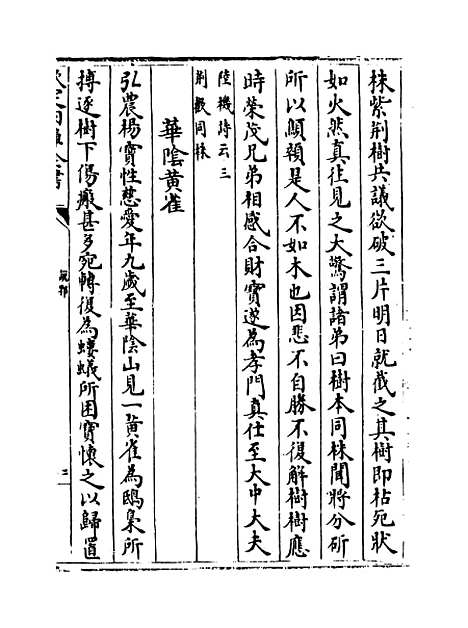 株紫荆樹共議欲破三片明日就截之其樹即枯死狀
如火然真往見之大驚謂諸弟曰樹本同株聞將分斫
所以顦顇是人不如木也因悲不自勝不復解樹樹應
時榮茂兄弟相感合財寳遂為孝門真仕至大中大夫
陸機詩云三
荆歡同株
華陰黄雀
弘農楊寳性慈愛年九歳至華陰山見一黄雀為鴟梟所
搏逐樹下傷瘢甚多宛轉復為螻蟻所困寳懷之以歸置
欽定四庫全書
說郛
三